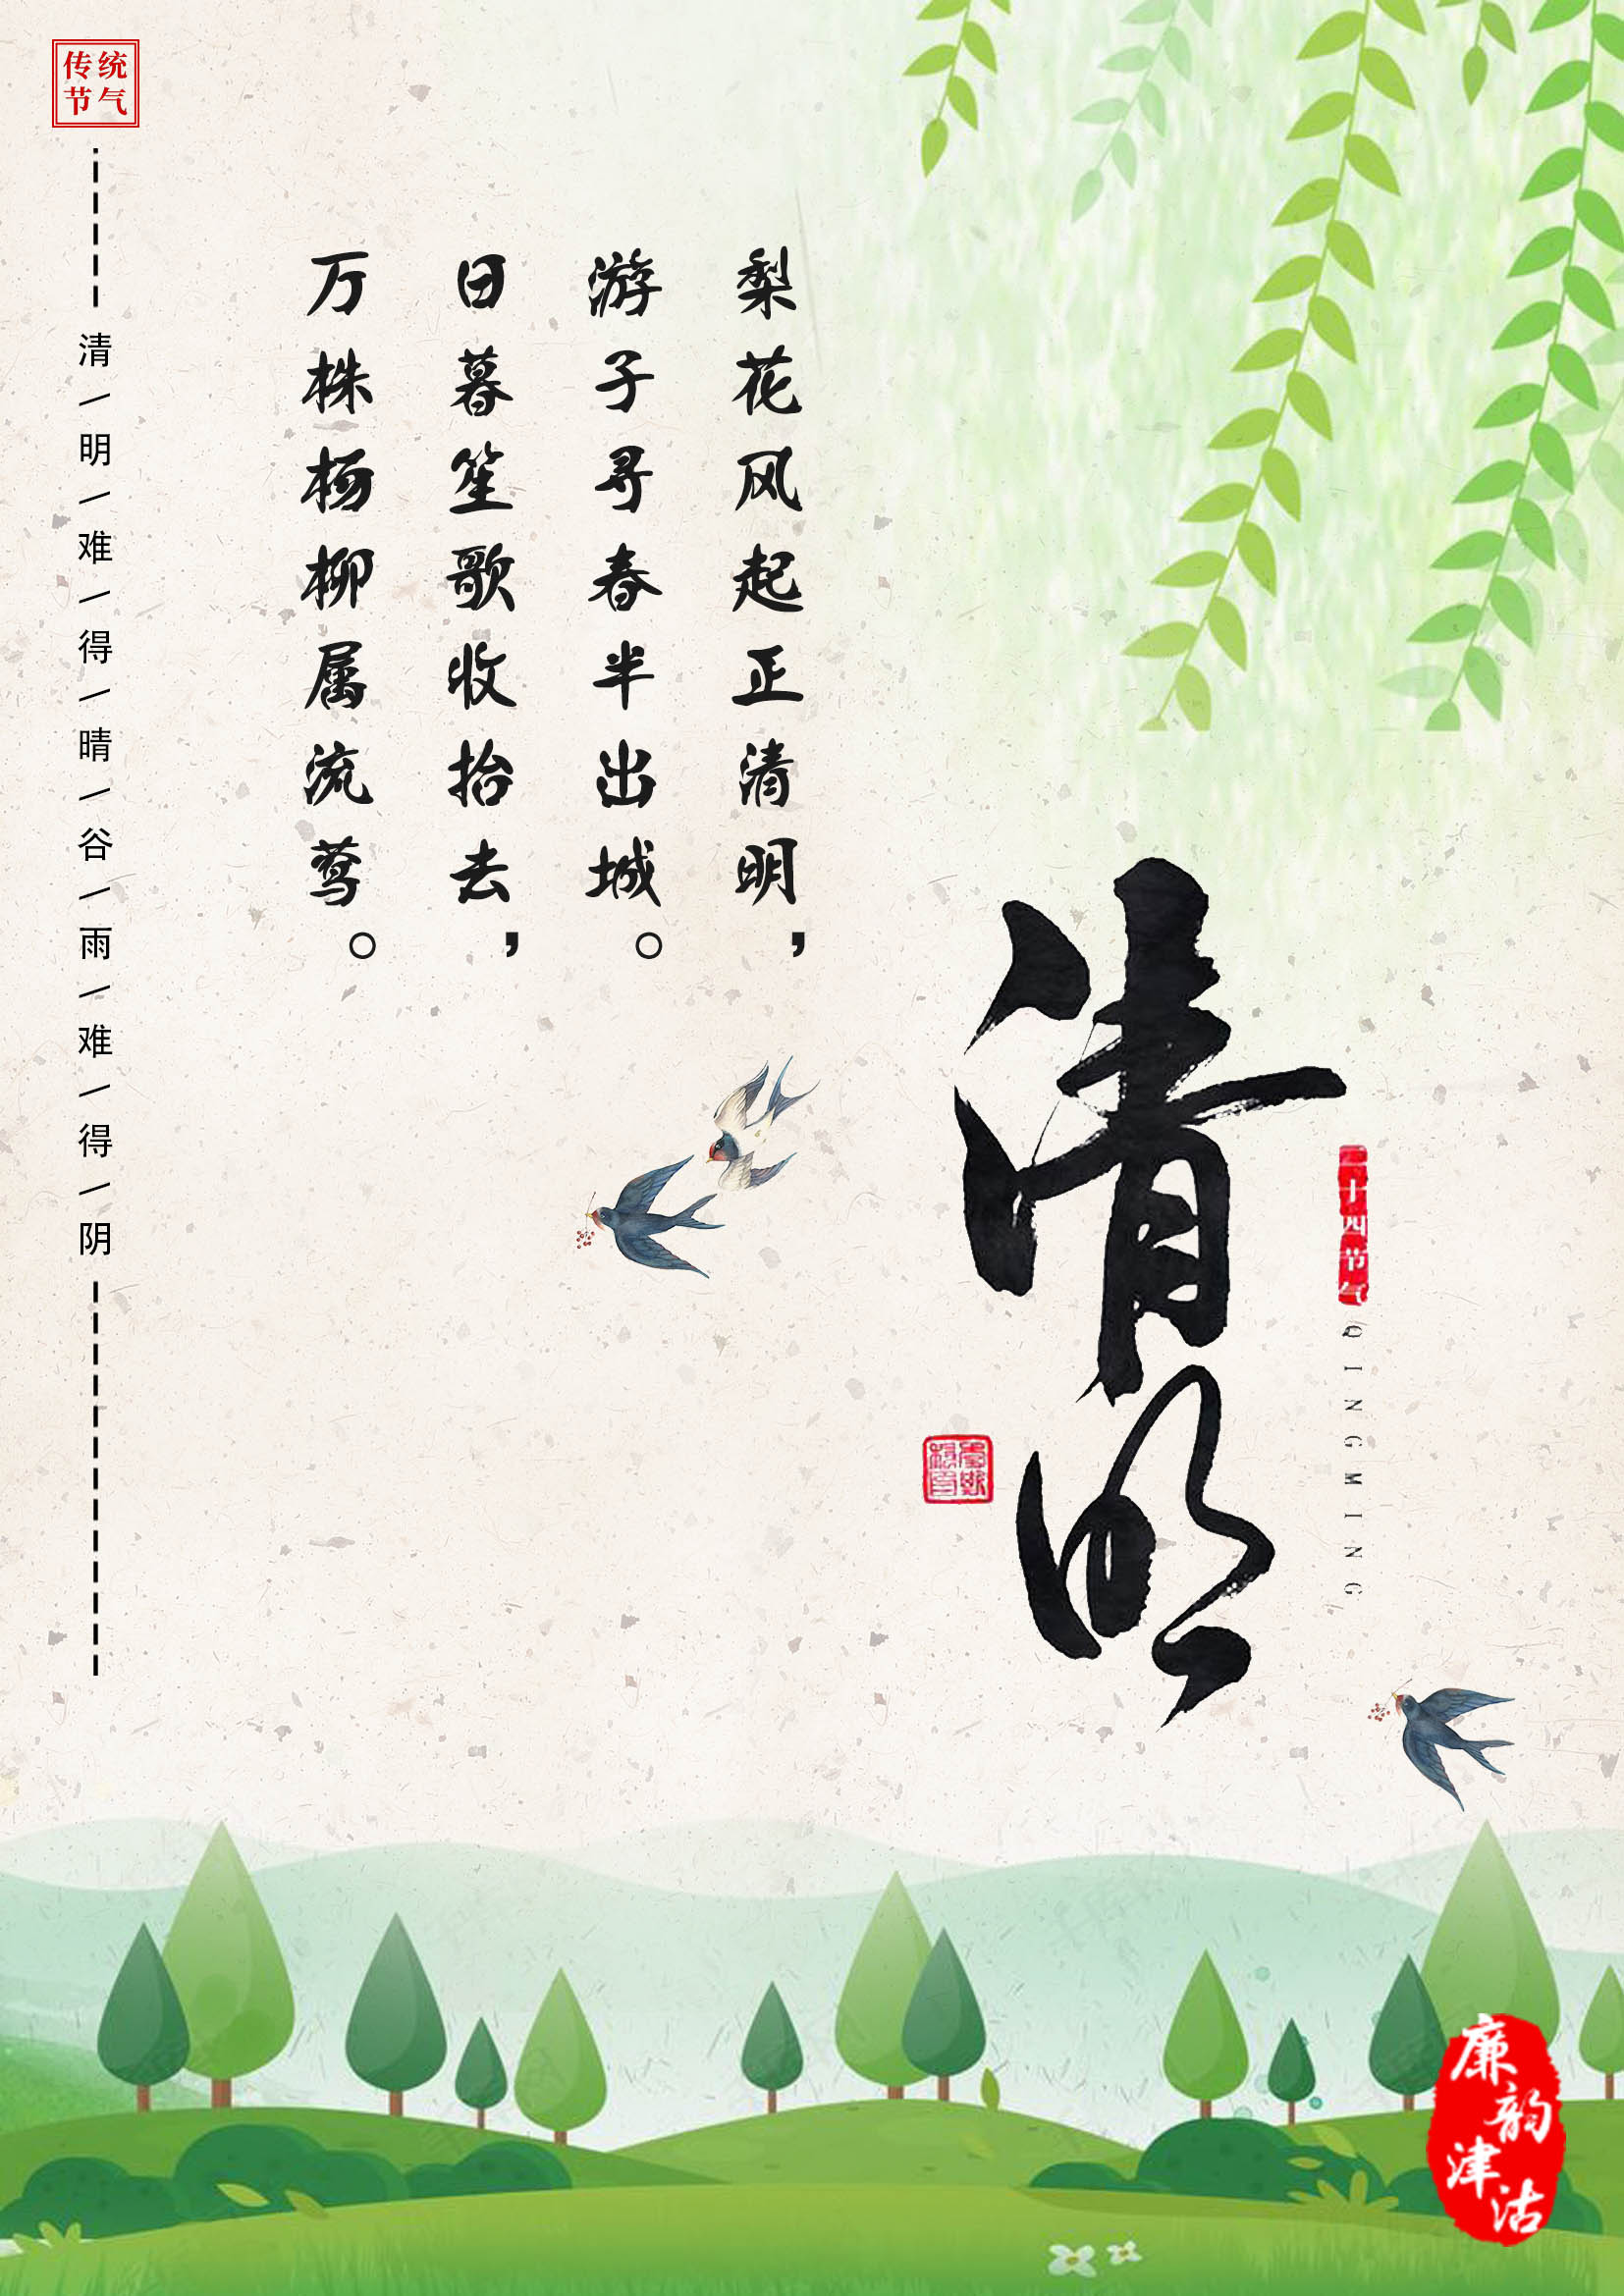 传统
节气
清/明/难/得/晴/谷/雨/难/得/阴
梨花风起正清明，
游子寻春半出城。
日暮笙歌收抬去，
万株杨柳属流莺。
清明
二十四节气
QINGMING
廉韵津沽